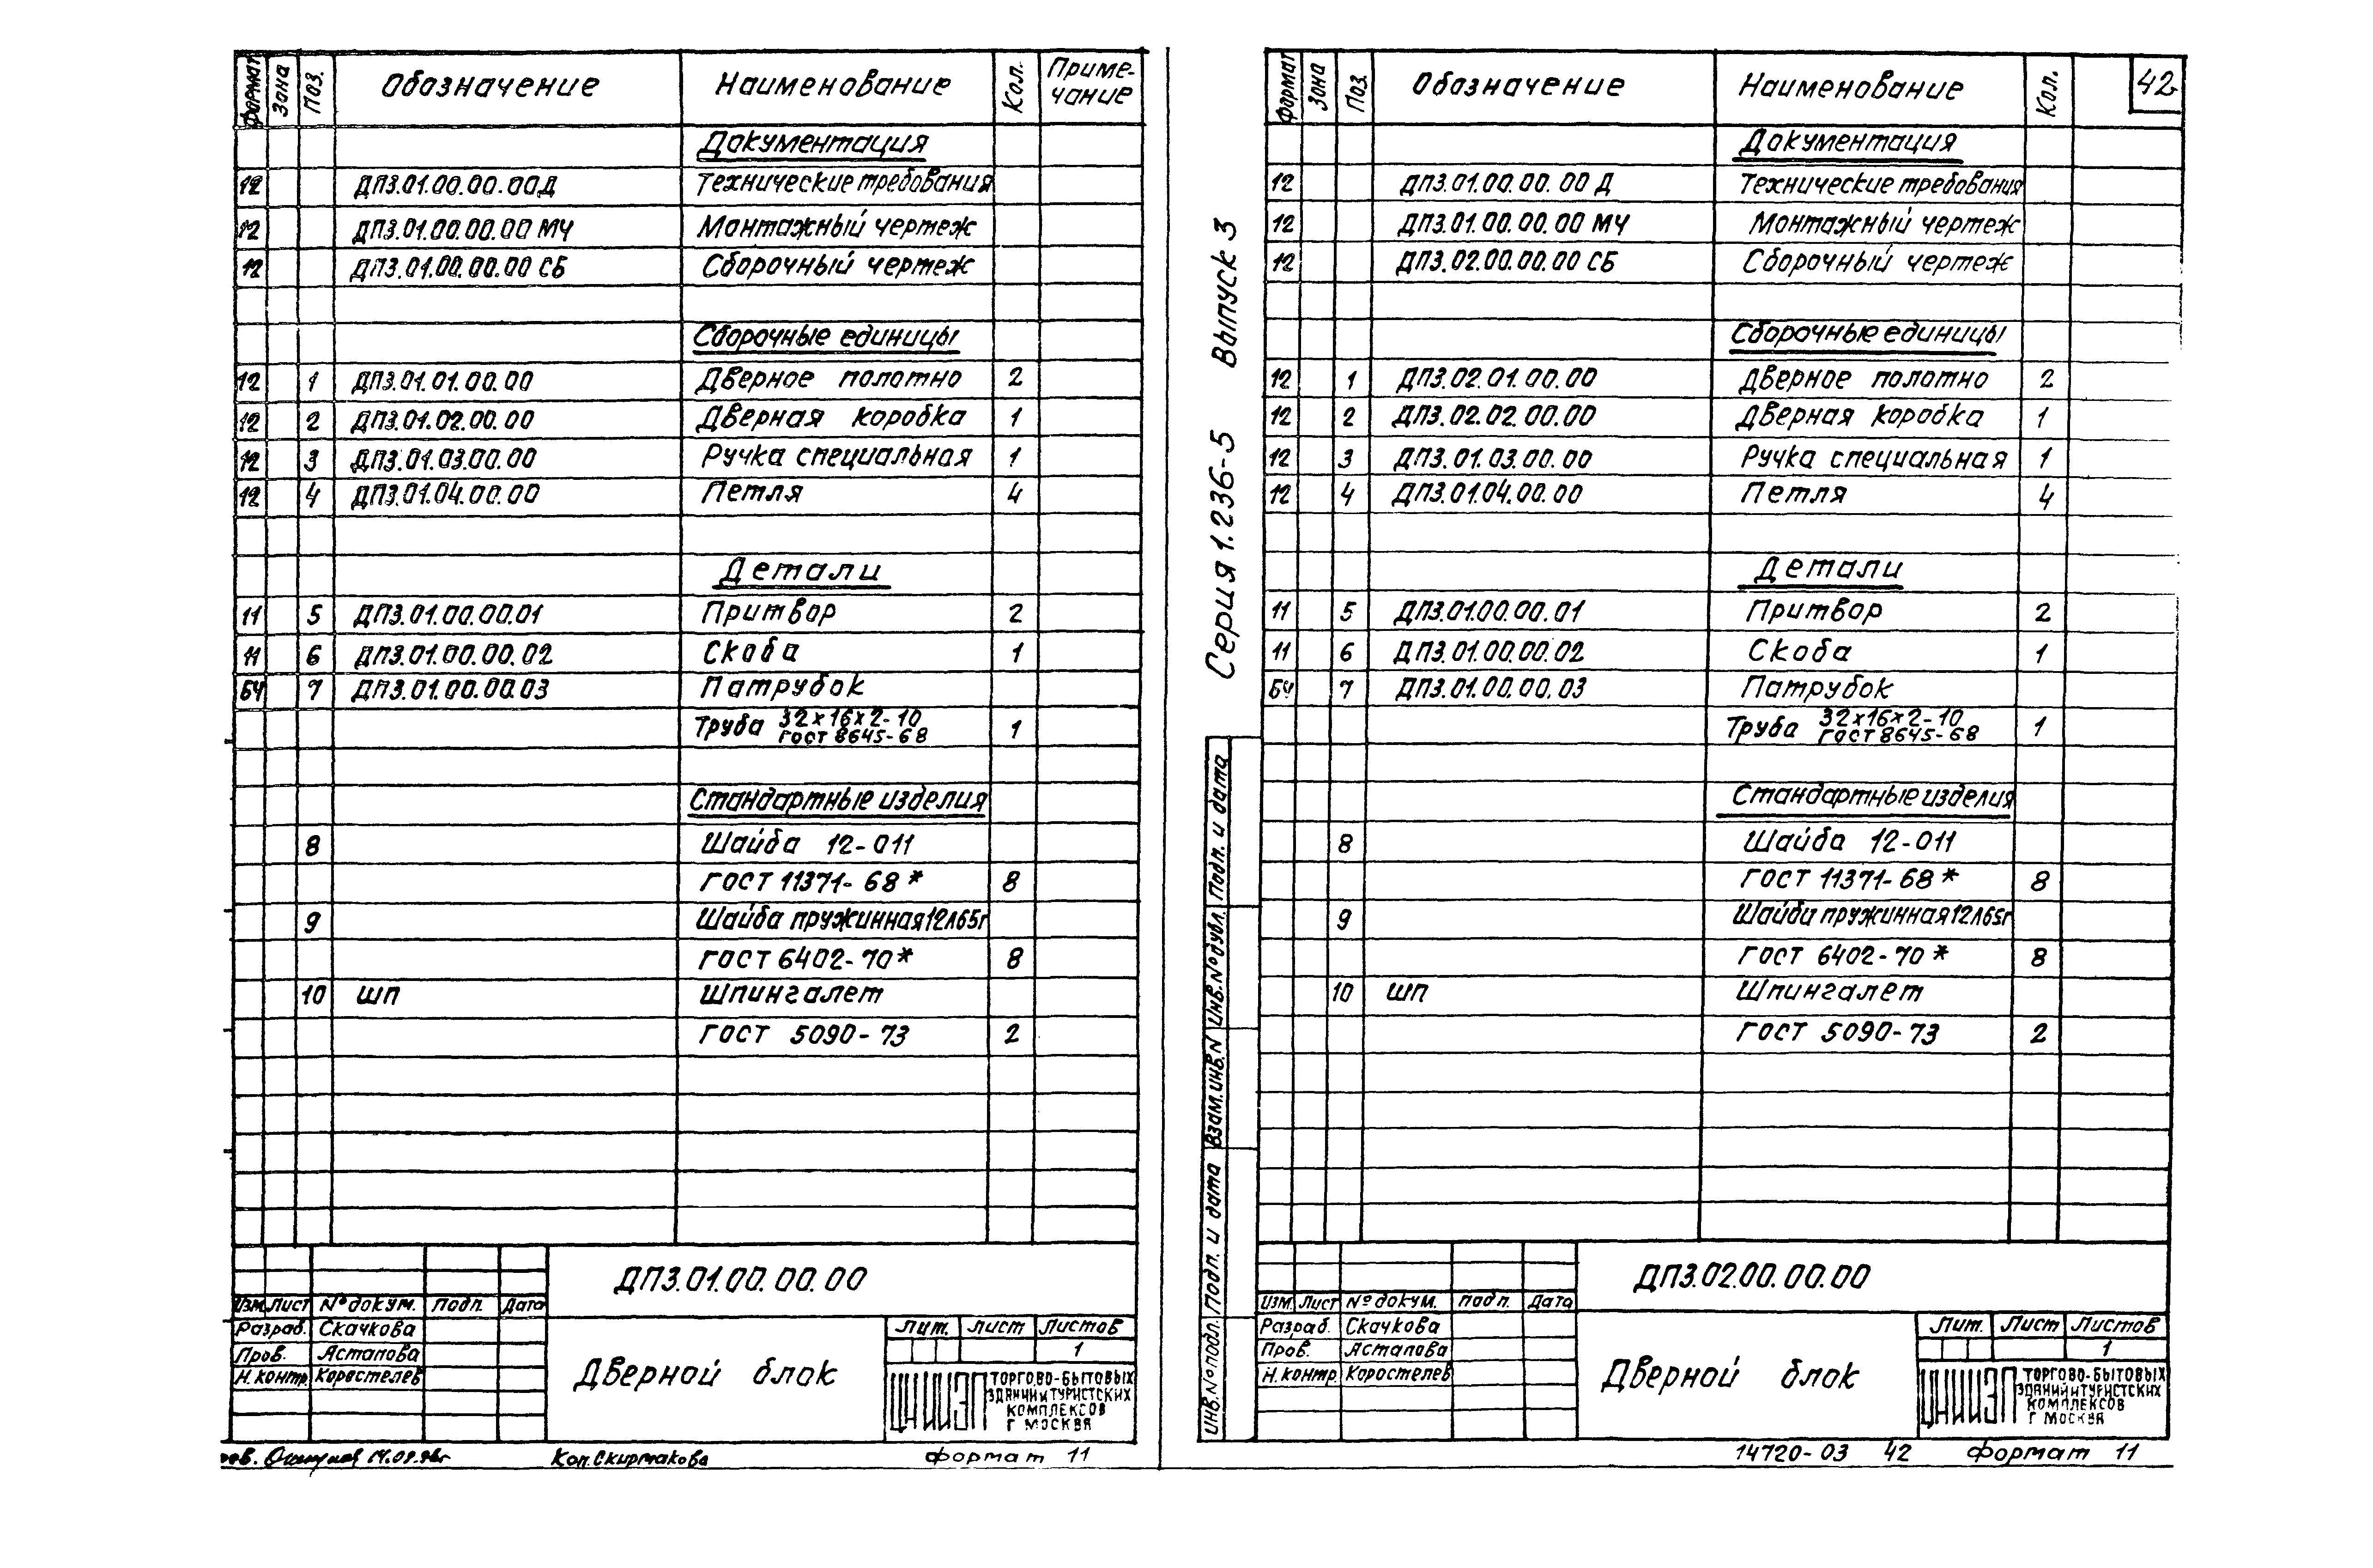 Формат Зона Поз. Обозначение Наименование Кол. Приме-
чание
Документация
12 ДПЗ.01.00.00.00Д Технические требования
12 ДПЗ.01.00.00.00 МЧ Монтажный чертеж
12 ДПЗ.01.00.00.00 СБ Сборочный чертеж
Сборочные единицы
12 1 ДПЗ.01.01.00.00 Дверное полотно 2
12 2 ДПЗ.01.02.00.00 Дверная коробка 1
12 3 ДПЗ.01.03.00.00 Ручка специальная 1
12 4 ДПЗ.01.04.00.00 Петля 4
Детали
11 5 ДПЗ.01.00.00.01 Притвор 2
11 6 ДПЗ.01.00.00.02 Скоба 1
БЧ 7 ДПЗ.01.00.00.03 Патрубок
Труба 32х16х2-10
ГОСТ 8645-68 1
Стандартные изделия
8 Шайба 12-011
ГОСТ 11371-68* 8
9 Шайба пружинная 12Л65г
ГОСТ 6402-70* 8
10 ШП Шпингалет
ГОСТ 5090-73 2
ДПЗ.01.00.00.00
Изм. Лист № докум. Подп. Дата
Разраб. Скачкова
Пров. Астапова
Н.контр. Коростелев
Дверной блок
Лит. Лист Листов
1
ЦНИИЭП ТОРГОВО-БЫТОВЫХ
ЗДАНИЙ И ТУРИСТСКИХ
КОМПЛЕКСОВ
Г МОСКВА
Кол. Скирмакова
Формат 11
Серия 1.236-5 Выпуск 3
Формат Зона Поз. Обозначение Наименование Кол. 42
Документация
12 ДПЗ.01.00.00.00 Д Технические требования
12 ДПЗ.01.00.00.00 МЧ Монтажный чертеж
12 ДПЗ.02.00.00.00 СБ Сборочный чертеж
Сборочные единицы
12 1 ДПЗ.02.01.00.00 Дверное полотно 2
12 2 ДПЗ.02.02.00.00 Дверная коробка 1
12 3 ДПЗ.01.03.00.00 Ручка специальная 1
12 4 ДПЗ.01.04.00.00 Петля 4
Детали
11 5 ДПЗ.01.00.00.01 Притвор 2
11 6 ДПЗ.01.00.00.02 Скоба 1
БЧ 7 ДПЗ.01.00.00.03 Патрубок
Труба 32х16х2-10
ГОСТ 8645-68 1
Стандартные изделия
8 Шайба 12-011
ГОСТ 11371-68* 8
9 Шайба пружинная 12Л65г
ГОСТ 6402-70* 8
10 ШП Шпингалет
ГОСТ 5090-73 2
Инв.№ подл. Подп. и дата Взам.инв.N Инв.№ дубл. Подп. и дата
ДПЗ.02.00.00.00
Изм. Лист № докум. Подп. Дата
Разраб. Скачкова
Пров. Астапова
Н.контр. Коростелев
Дверной блок
Лит. Лист Листов
1
ЦНИИЭП ТОРГОВО-БЫТОВЫХ
ЗДАНИЙ И ТУРИСТСКИХ
КОМПЛЕКСОВ
Г МОСКВА
14720-03 42 Формат 11